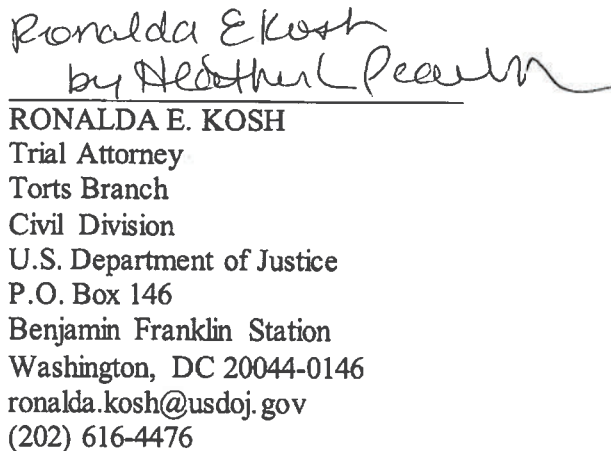 Ronalda E Kosh
by Heather L Pearlman
RONALDA E. KOSH
Trial Attorney
Torts Branch
Civil Division
U.S. Department of Justice
P.O. Box 146
Benjamin Franklin Station
Washington, DC 20044-0146
ronalda.kosh@usdoj.gov
(202) 616-4476